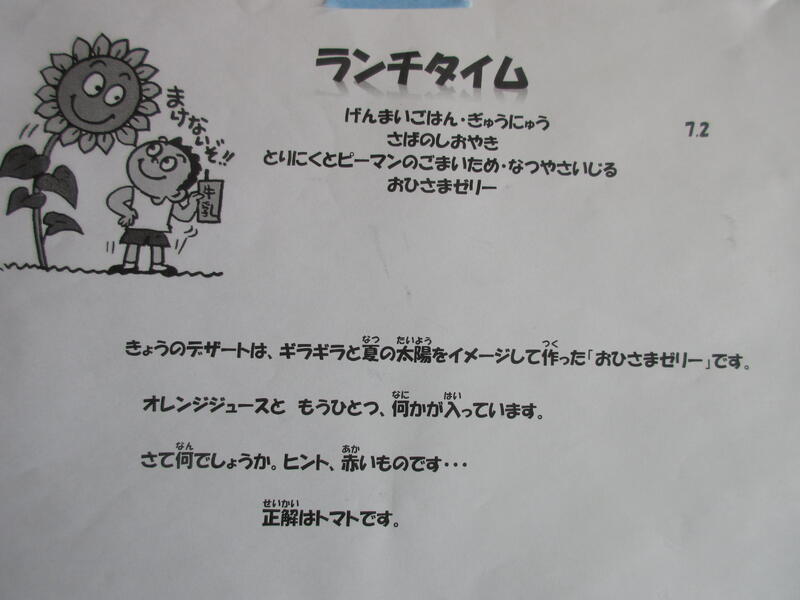 ランチタイム
まけないぞ!!
牛乳
げんまいごはん・ぎゅうにゅう
7.2
さばのしおやき
とりにくとピーマンのごまいため・なつやさいじる
おひさまゼリー
なつ たいよう つく
きょうのデザートは、ギラギラと夏の太陽をイメージして作った「おひさまゼリー」です。
なに はい
オレンジジュースと もうひとつ、何かが入っています。
なん あか
さて何でしょうか。ヒント、赤いものです・・・
せいかい
正解はトマトです。